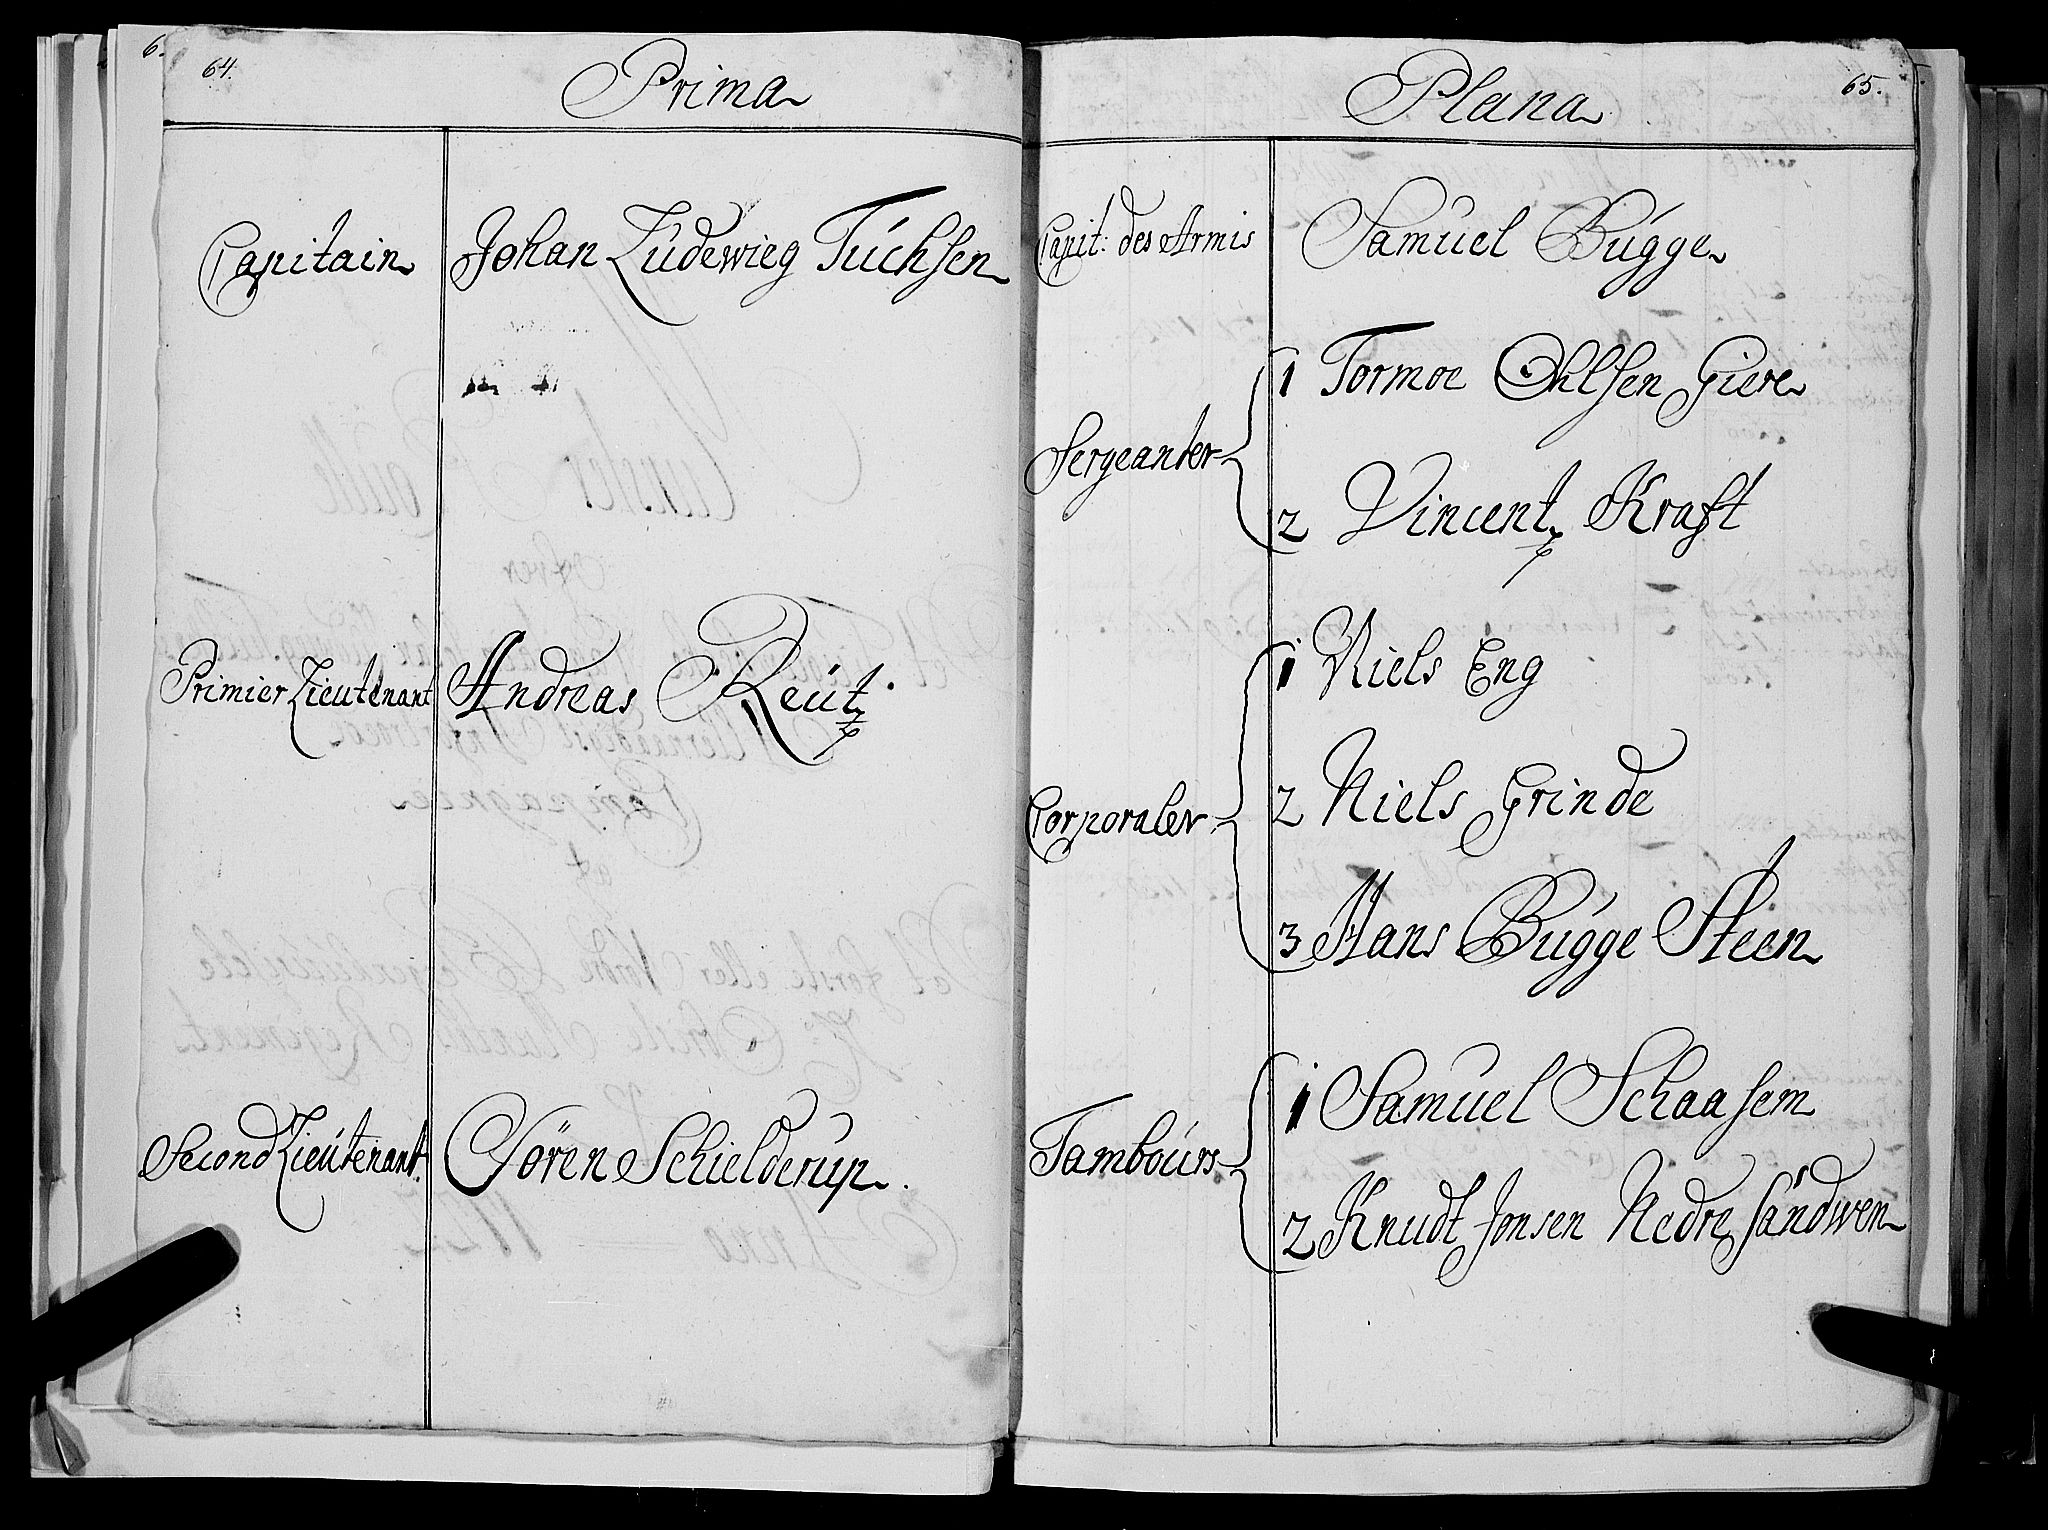 64.
Prima
Capitain Johan Ludewieg Tuchsen
Primier Lieutenant Andreas Reutz.
Second Lieutenant. Sören Schielderup.
65.
Plana
Capit: des Armis Samuel Bugge
Sergeanter
1 Tormoe Ohlsen Giere
2 Vincentz Kraft
Corporaler
1 Niels Eng
2 Niels Grinde
3 Hans Bugge Steen
Tambours
1 Samuel Schaasem
2 Knudt Jonsen Nedre Sandwen